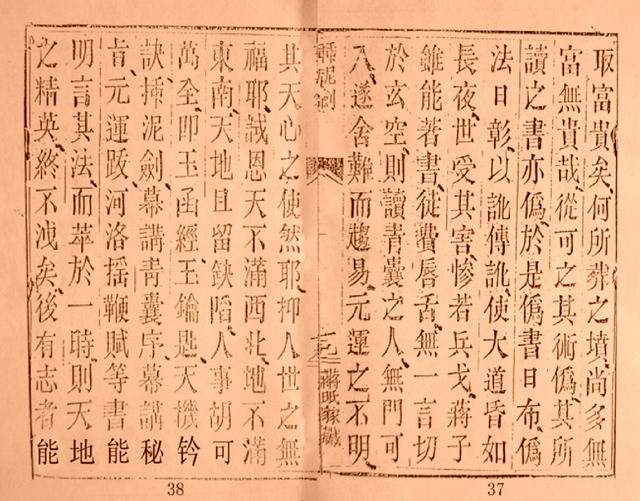 取富貴矣何所葬之墳尚多無
富無貴哉從可之其術僞其所
讀之書亦僞於是僞書日布僞
法日彰以訛傳訛使大道昏如
長夜世受其害慘若兵戈蔣子
雖能著書徒費唇舌無一言切
於玄空則讀青囊之人無門可
入遂舍難而趨易元運之不明
插泥劍
蔣氏家藏
其天心之使然耶抑人世之無
福耶誠恩天不滿西北地不滿
東南天地且留缺陷人事胡可
萬全即玉函經玉鑰匙天機鈐
訣插泥劍幕講青囊序幕講秘
旨元運跋河洛搖鞭賦等書能
明言其法而萃於一時則天地
之精英終不洩矣後有志者能
38
37